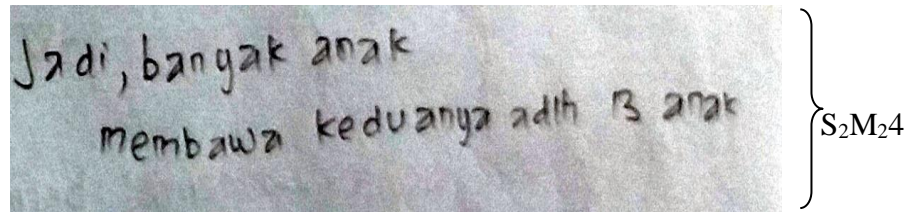 Jadi, banyak anak
membawa keduanya adlh 13 anak
S₂M₂4